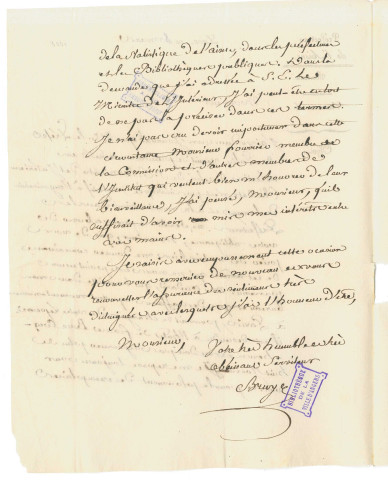 de la Statistique de l'aisne, dans les préfectures
et les Bibliothèques publiques. Dans la
demande que j'ai adressée à S. E. Le
Ministre de l'Intérieur, J'ai peut être eu tort
de ne pas la préciser dans ces termes.
Je n'ai pas cru devoir importuner dans cette
circonstance Monsieur fourrier membre de
la Commission et d'autres membres de
l'Institut qui veulent bien m'honorer de leur
bienveillance, J'ai pensé, Monsieur, qu'il
suffisait d'avoir mis mes intérêts entre
vos mains.
Je saisis avec empressement cette occasion
pour vous remercier de nouveau et vous
renouveller l'assurance des sentimens très
distingués avec lesquels j'ai l'honneur d'être,
Monsieur,
Votre très humble et très
obéissant Serviteur
BIBLIOTHÈQUE
DE LA
VILLE D'ANGERS